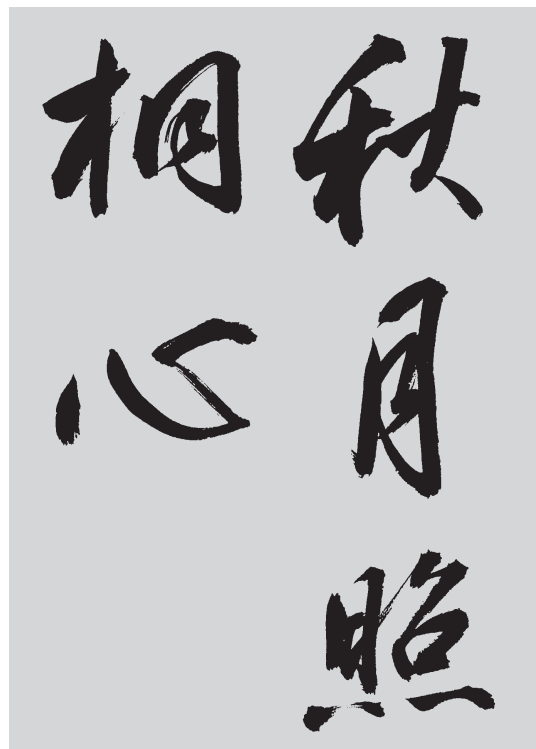 秋月照
桐心